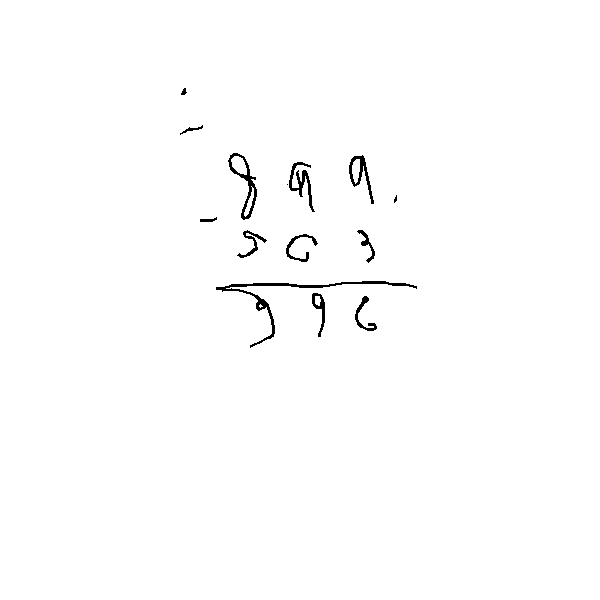 899
- 503
396